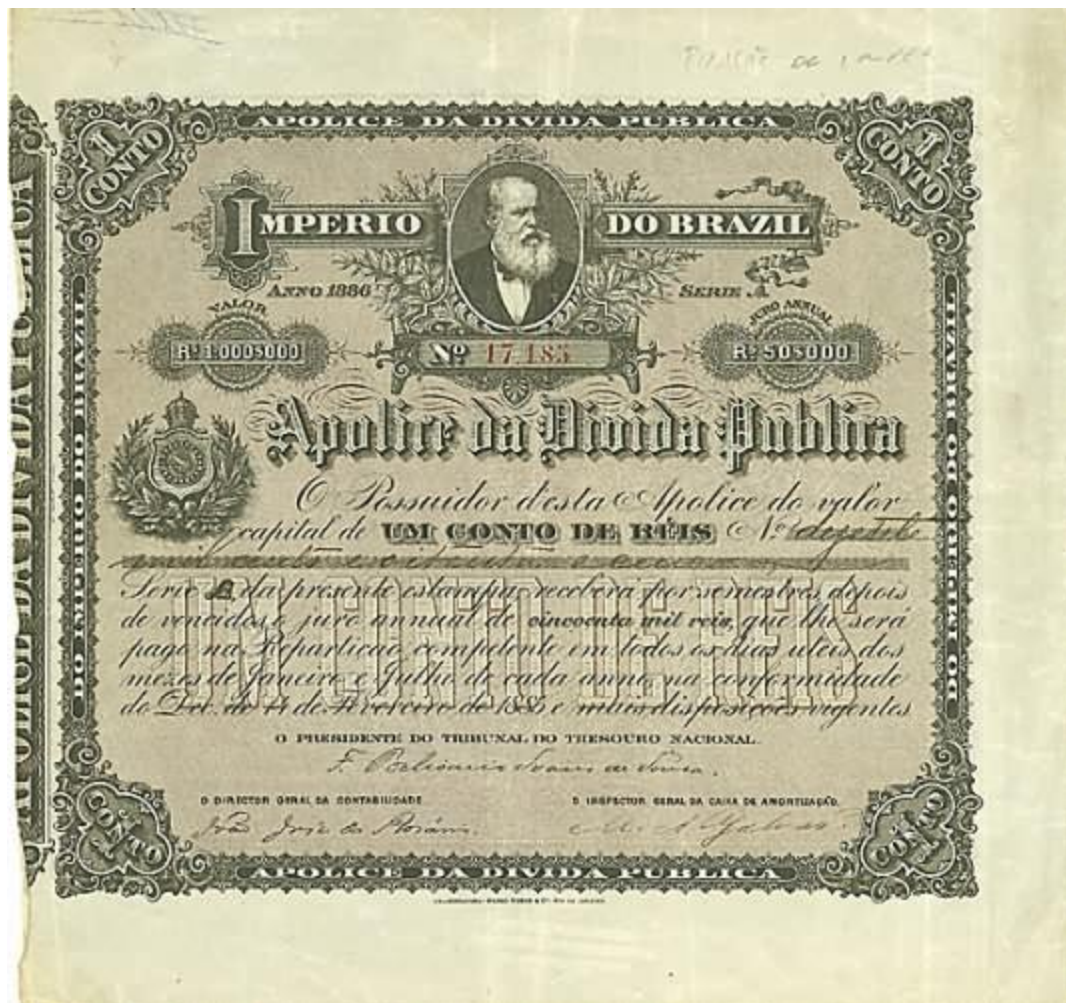 APOLICE DA DIVIDA PUBLICA
1 CONTO
1 CONTO
IMPERIO DO BRAZIL
ANNO 1886
SERIE A
VALOR
Rˢ 1.000$000
Nº 17.185
JURO ANNUAL
Rˢ 50$000
Apolice da Divida Publica
O Possuidor d'esta Apolice do valor
capital de UM CONTO DE RÉIS Nº dezesete
mil cento e oitenta e cinco
Serie A da presente estampa receberá por semestres depois
de vencidos o juro annual de cincoenta mil reis, que lhe será
pago na Repartição competente em todos os dias uteis dos
mezes de Janeiro e Julho de cada anno, na conformidade
do Dec. de de Fevereiro de 188 e mais disposições vigentes
UM CONTO DE REIS
O PRESIDENTE DO TRIBUNAL DO THESOURO NACIONAL.
F. Belisario Soares de Souza.
O DIRECTOR GERAL DA CONTABILIDADE
O INSPECTOR GERAL DA CAIXA DE AMORTIZAÇÃO.
João José do Rosário.
M. A. Galvão.
1 CONTO
1 CONTO
APOLICE DA DIVIDA PUBLICA
DO IMPERIO DO BRAZIL
DO IMPERIO DO BRAZIL
APOLICE DA DIVIDA PUBLICA